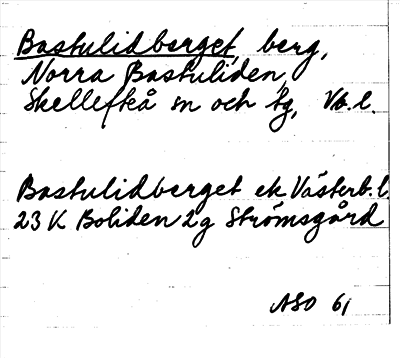 Bastulidberget, berg,
Norra Bastuliden,
Skellefteå sn och tg, Vb. l.
Bastulidberget ek Västerb. l.
23 K Boliden 2g Strömsgård
ASO 61